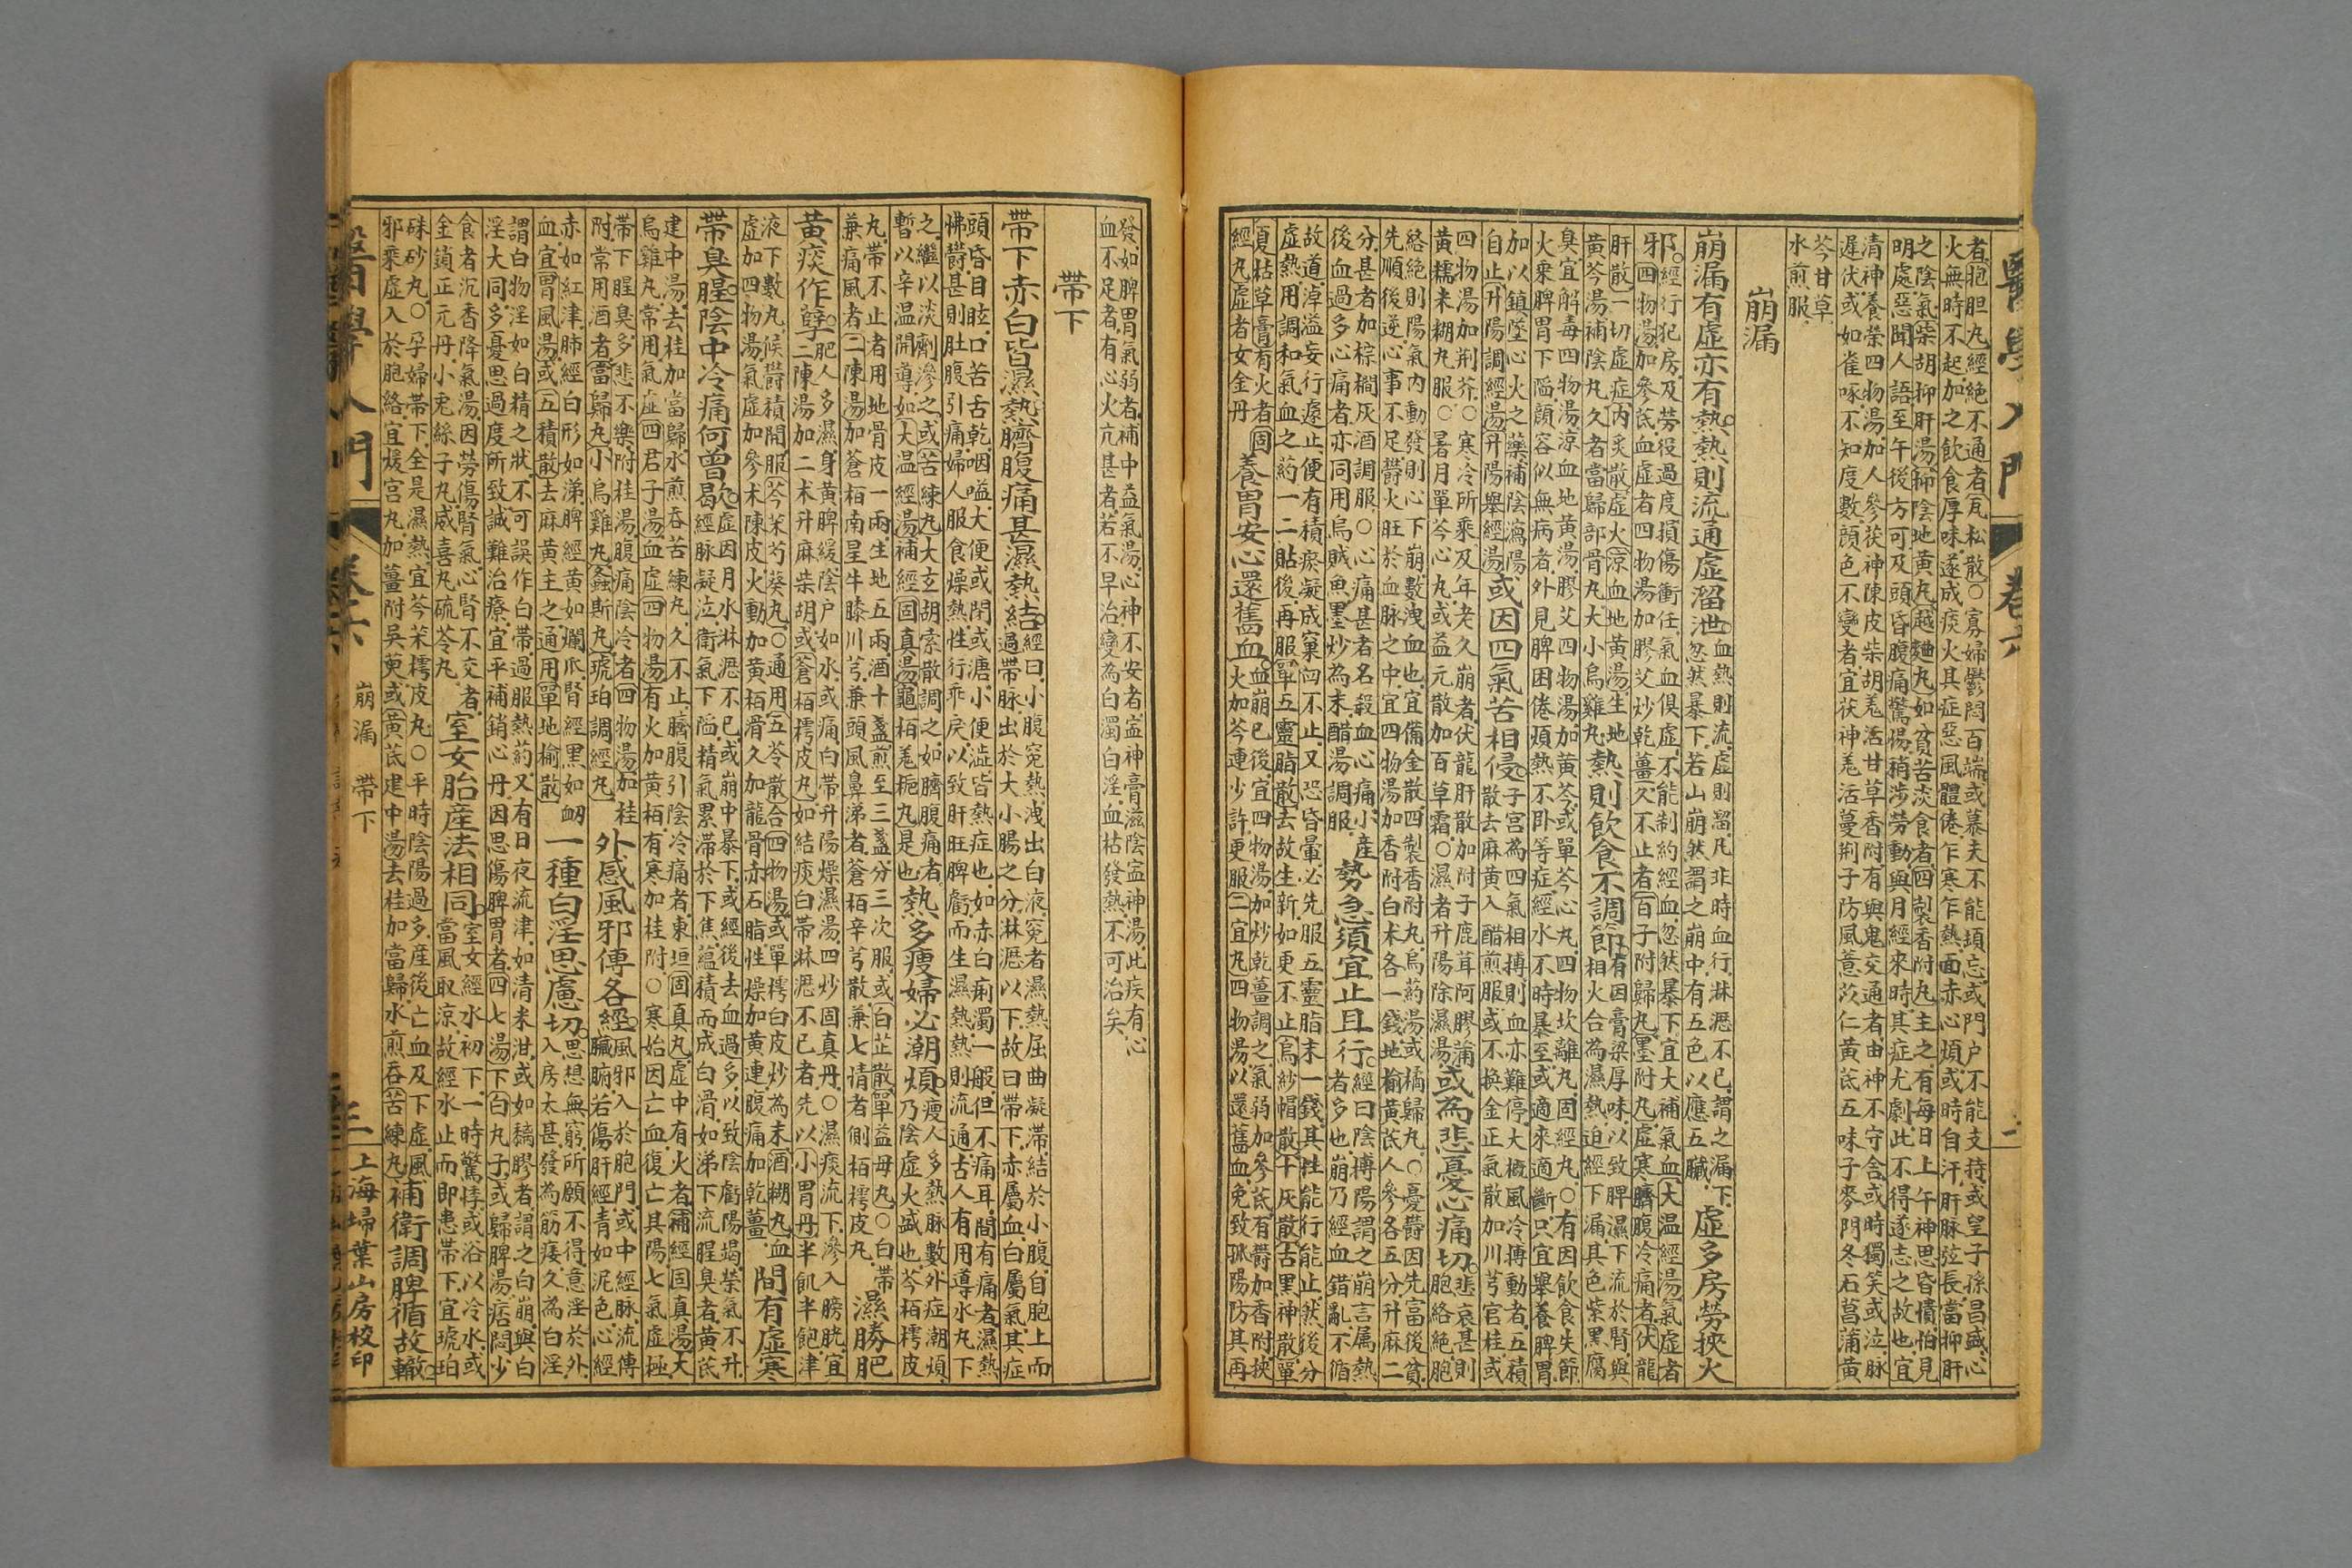 醫學入門 卷六 二
者抱胆丸經絕不通者瓦松散○寡婦鬱悶百端或慕夫不能頃忘或門户不能支持或望子孫昌盛心
火無時不起加之飲食厚味遂成痰火其症惡風體倦乍寒乍熱面赤心煩或時自汗肝脉弦長當抑肝
之陰氣柴胡抑肝湯掃陰地黃丸越麯丸如貧苦淡食者四製香附丸主之有每日上午神思昏憒怕見
明處惡聞人語至午後方可及頭昏腹痛驚惕稍涉勞動與月經來時其症尤劇此不得遂志之故也宜
清神養榮四物湯加人參茯神陳皮柴胡羌活甘草香附有與鬼交通者由神不守舍或時獨笑或泣脉
遲伏或如雀啄不知度數顏色不變者宜茯神羌活蔓荆子防風薏苡仁黃芪五味子麥門冬石菖蒲黃
芩甘草
水煎服
崩漏
崩漏有虛亦有熱熱則流通虛溜泄
血熱則流虛則溜凡非時血行淋瀝不已謂之漏下
忽然暴下若山崩然謂之崩中有五色以應五臟
虛多房勞挾火
邪
經行犯房及勞役過度損傷衝任氣血俱虛不能制約經血忽然暴下宜大補氣血大温經湯氣虛者
四物湯加參芪血虛者四物湯加膠艾炒乾薑久不止者百子附歸丸墨附丸虛寒臍腹冷痛者伏龍
肝散一切虛症内炙散虛火涼血地黃湯生地
黃芩湯補陰丸久者當歸部骨丸大小烏雞丸
熱則飲食不調節
有因膏粱厚味以致脾濕下流於腎與
相火合為濕熱迫經下漏其色紫黑腐
臭宜解毒四物湯涼血地黃湯膠艾四物湯加黃芩或單芩心丸四物坎離丸固經丸○有因飲食失節
火乘脾胃下陷顏容似無病者外見脾困倦煩熱不卧等症經水不時暴至或適來適斷只宜舉養脾胃
加以鎮墜心火之藥補陰瀉陽
自止升陽調經湯升陽舉經湯
或因四氣苦相侵
子宮為四氣相搏則血亦難停大概風冷搏動者五積
散去麻黃入醋煎服或不換金正氣散加川芎官桂或
四物湯加荆芥○寒冷所乘及年老久崩者伏龍肝散加附子鹿茸阿膠蒲
黃糯米糊丸服○暑月單芩心丸或益元散加百草霜○濕者升陽除濕湯
或為悲憂心痛切
悲哀甚則
胞絡絕胞
絡絕則陽氣内動發則心下崩數洩血也宜備金散四製香附丸烏葯湯或橘歸丸○憂鬱因先富後貧
先順後逆心事不足鬱火旺於血脉之中宜四物湯加香附白朮各一錢地榆黃芪人參各五分升麻二
分甚者加棕櫚灰酒調服○心痛甚者名殺血心痛小產
後血過多心痛者亦同用烏賊魚墨炒為末醋湯調服
勢急須宜止且行
經曰陰搏陽謂之崩言属熱
者多也崩乃經血錯亂不循
故道淖溢妄行遽止便有積瘀凝成窠臼不止又恐昏暈必先服五靈脂末一錢其性能行能止然後分
虛熱用調和氣血之葯一二貼後再服單五靈脂散去故生新如更不止烏紗帽散十灰散古黑神散單
夏枯草膏有火者固
經丸虛者女金丹
養胃安心還舊血
血崩已後宜四物湯加炒乾薑調之氣弱加參芪有鬱加香附挾
火加芩連少許更服二宜丸四物湯以還舊血免致孤陽防其再
發如脾胃氣弱者補中益氣湯心神不安者寍神膏滋陰寍神湯此疾有心
血不足者有心火亢甚者若不早治變為白濁白淫血枯發熱不可治矣
帶下
帶下赤白皆濕熱臍腹痛甚濕熱結
經曰小腹寃熱洩出白液寃者濕熱屈曲凝滯結於小腹自胞上而
過帶脉出於大小腸之分淋瀝以下故曰帶下赤屬血白屬氣其症
頭昏目眩口苦舌乾咽嗌大便或閉或溏小便澁皆熱症也如赤白痢濁一般但不痛耳間有痛者濕熱
怫鬱甚則肚腹引痛婦人服食燥熱性行乖戾以致肝旺脾虧而生濕熱熱則流通古人有用導水丸下
之繼以淡劑滲之或苦練丸大玄胡索散調之如臍腹痛者
暫以辛温開導如大温經湯補經固真湯龜栢羌梔丸是也
熱多瘦婦必潮煩
瘦人多熱脉數外症潮煩
乃陰虛火盛也芩栢樗皮
丸帶不止者用地骨皮一兩生地五兩酒十盞煎至三盞分三次服或白芷散單益母丸○白帶
兼痛風者二陳湯加蒼栢南星牛膝川芎兼頭風鼻涕者蒼栢辛芎散兼七情者側栢樗皮丸
濕勝肥
黃痰作孽
肥人多濕身黃脾緩陰户如水或痛白帶升陽燥濕湯四炒固真丹○濕痰流下滲入膀胱宜
二陳湯加二朮升麻柴胡或蒼栢樗皮丸如結痰白帶淋瀝不已者先以小胃丹半飢半飽津
液下數丸候鬱積開服芩茱芍葵丸○通用五苓散合四物湯或單樗白皮炒為末酒糊丸血
虛加四物湯氣虛加參朮陳皮火動加黃栢滑久加龍骨赤石脂性燥加黃連腹痛加乾薑
間有虛寒
帶臭腥陰中冷痛何曾歇
虛因月水淋瀝不已或崩中暴下或經後去血過多以致陰虧陽竭榮氣不升
經脉凝泣衛氣下陷精氣累滯於下焦蘊積而成白滑如涕下流腥臭者黃芪
建中湯去桂加當歸水煎吞苦練丸久不止臍腹引陰冷痛者東垣固真丸虛中有火者補經固真湯大
烏雞丸常用氣虛四君子湯血虛四物湯有火加黃栢有寒加桂附○寒始因亡血復亡其陽七氣虛極
帶下腥臭多悲不樂附桂湯腹痛陰冷者四物湯加桂
附常用酒者當歸丸小烏雞丸螽斯丸琥珀調經丸
外感風邪傳各經
風邪入於胞門或中經脉流傳
臟腑若傷肝經青如泥色心經
赤如紅津肺經白形如涕脾經黃如爛爪腎經黑如衂
血宜胃風湯或五積散去麻黃主之通用單地榆散
一種白淫思慮切
思想無窮所願不得意淫於外
入房太甚發為筋痿久為白淫
謂白物淫如白精之狀不可誤作白帶過服熱葯又有日夜流津如清米泔或如䊩膠者謂之白崩與白
淫大同多憂思過度所致誠難治療宜平補銷心丹因思傷脾胃者四七湯下白丸子或歸脾湯痞悶少
食者沉香降氣湯因勞傷腎氣心腎不交者
金鎖正元丹小兎絲子丸威喜丸硫苓丸
室女胎產法相同
室女經水初下一時驚悸或浴以冷水或
當風取涼故經水止而即患帶下宜琥珀
硃砂丸○孕婦帶下全是濕熱宜芩茱樗皮丸○平時陰陽過多產後亡血及下虛風
邪乘虛入於胞絡宜煖宮丸加薑附吳萸或黃芪建中湯去桂加當歸水煎吞苦練丸
補衛調脾循故轍
醫學入門 卷六 崩漏 帶下 三 上海埽葉山房校印